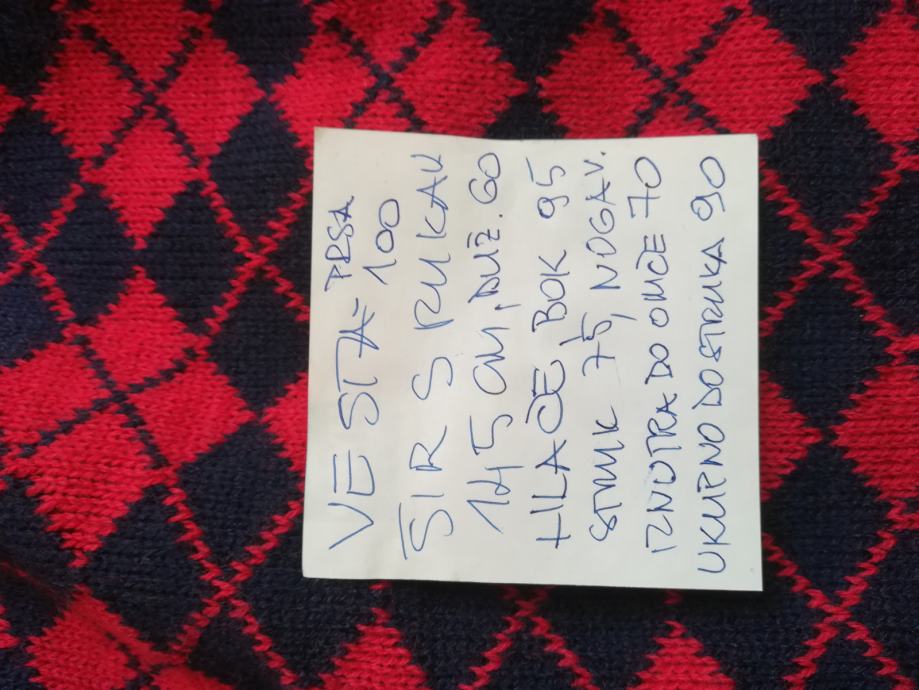 VESTA = PRSA
100
ŠIR S RUKAV
145 CM, DUŽ. 60
HLAČE BOK 95
STRUK 75, NOGAV.
IZNUTRA DO 70
UKUPNO DO STRUKA 90